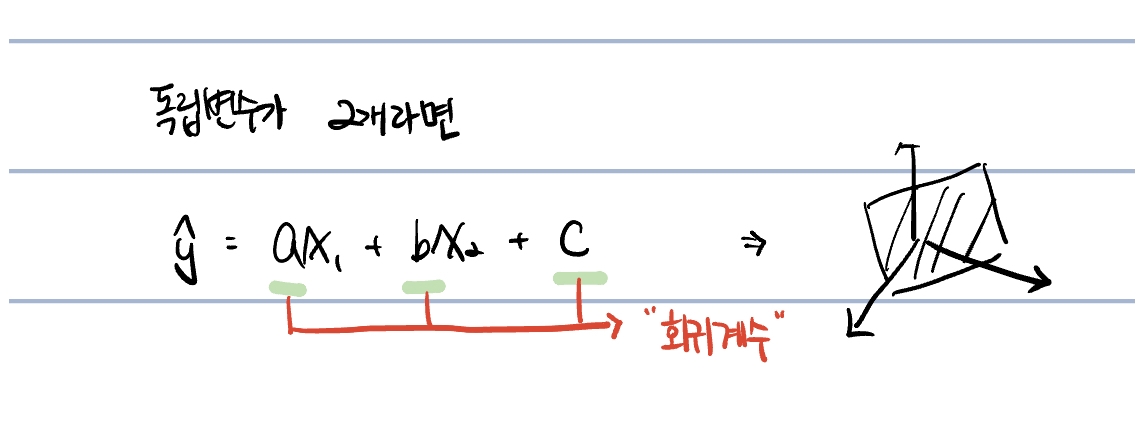 독립변수가 2개라면
ŷ = ax₁ + bx₂ + c ⇒
"회귀계수"